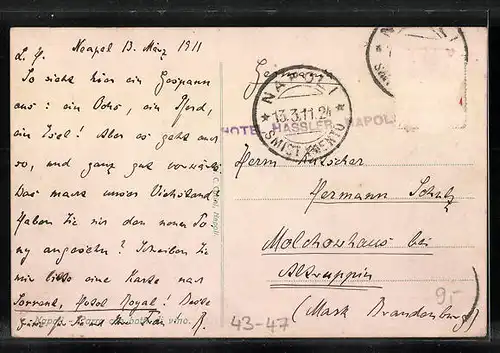 Neapel 13. März 1911
L. H.
So sieht hier ein Gespann
aus: ein Ochs, ein Pferd,
ein Esel! Aber es geht auch
so, und ganz gut vorwärts
Das macht unser Viehstand?
Haben Sie mir den neuen
angesehn? Schreiben Sie
mir bitte eine Karte nach
Sorrent, Hotel Royal! Beste
Napoli
vino.
Germania
NAPOLI
13.3.11.24
SMISTAMENTO
HOTEL HASSLER NAPOLI
Herrn Kutscher
Hermann Schulz
Molchowhaus bei
Altruppin
(Mark Brandenburg)
43-47
9.-